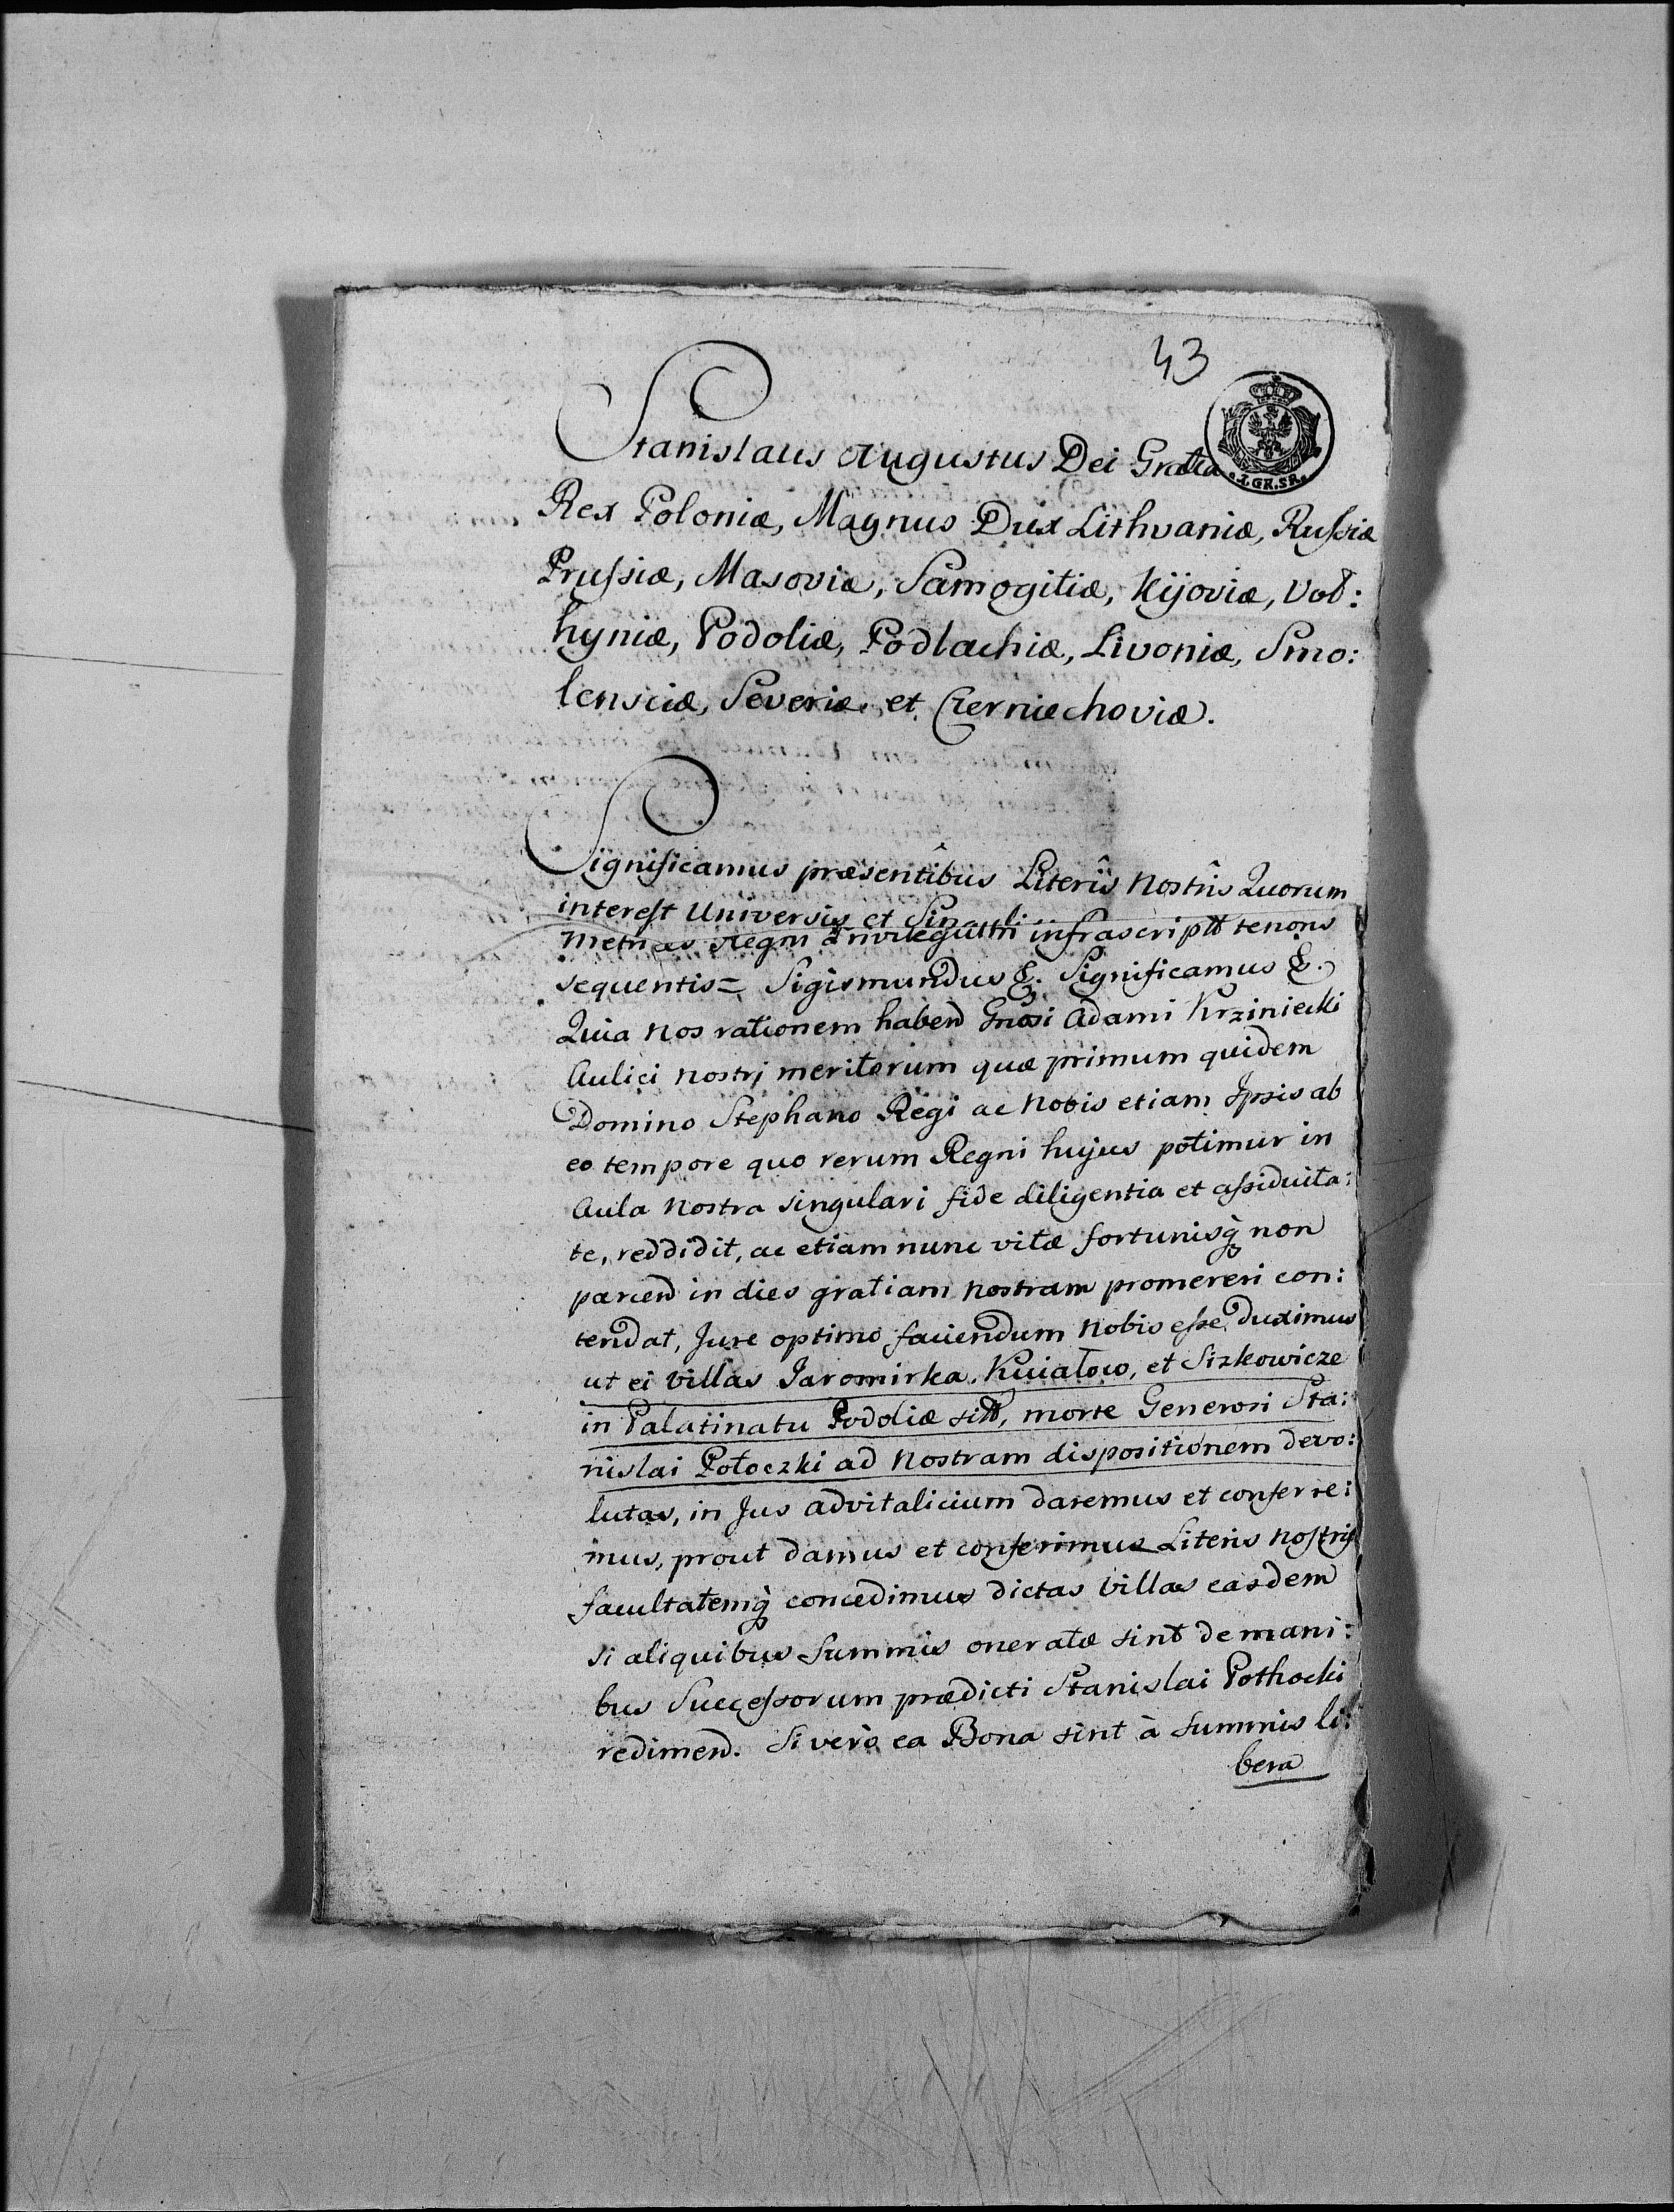 43
Stanislaus Augustus Dei Gratia
.1.GR.SR.
Rex Poloniæ, Magnus Dux Lithvaniæ, Rußiæ
Prußiæ, Masoviæ, Samogitiæ, Kijoviæ, Vol:
hyniæ, Podoliæ, Podlachiæ, Livoniæ, Smo:
lensciæ, Severiæ, et Czerniechoviæ.
Significamus præsentibus Literîs Nostrîs Quorum
interest Universis et Singuli
Metrices Regni Privilegium infrascriptt tenoris
sequentis = Sigismundus &. Significamus &.
Quia Nos rationem habend Gnosi Adami Krziniecki
Aulici nostri meritorum quæ primum quidem
Domino Stephano Regi ac Nobis etiam Ipsis ab
eo tempore quo rerum Regni hujus potimur in
Aula Nostra singulari fide diligentia et aßiduita:
te, reddidit, ac etiam nunc vitæ fortunisq̀ non
parcend in dies gratiam Nostram promereri con:
tendat, Jure optimo faciendum Nobis eße duximus
ut ei Villas Jaromirka, Kuiatow, et Sizkowicze
in Palatinatu Podoliæ sitt, morte Generosi Sta:
nislai Potoczki ad Nostram dispositionem devo:
lutas, in Jus advitalicium daremus et conferre:
mus, prout damus et conferimus Literis Nostris
facultatemq̀ concedimus dictas Villas easdem
si aliquibus Summis oneratæ sint de mani:
bus Succeßorum prædicti Stanislai Pothocki
redimend. Si verò ea Bona sint à summis li:
bera